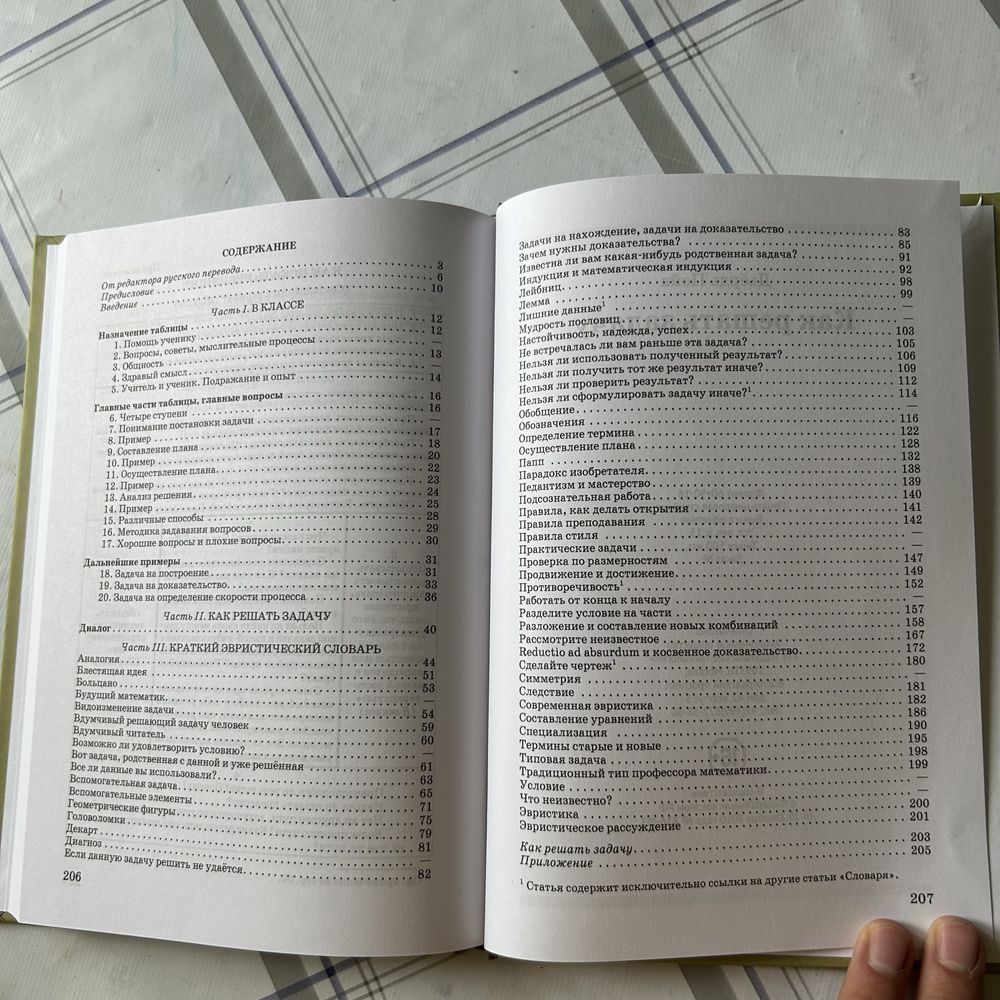 СОДЕРЖАНИЕ
От редактора русского перевода 3
Предисловие 6
Введение 10
Часть I. В КЛАССЕ
Назначение таблицы 12
1. Помощь ученику 12
2. Вопросы, советы, мыслительные процессы —
3. Общность 13
4. Здравый смысл
5. Учитель и ученик. Подражание и опыт 14
Главные части таблицы, главные вопросы 16
6. Четыре ступени 16
7. Понимание постановки задачи —
8. Пример 17
9. Составление плана 18
10. Пример 20
11. Осуществление плана 22
12. Пример 23
13. Анализ решения 24
14. Пример 25
15. Различные способы 28
16. Методика задавания вопросов 29
17. Хорошие вопросы и плохие вопросы 30
Дальнейшие примеры 31
18. Задача на построение 31
19. Задача на доказательство 33
20. Задача на определение скорости процесса 36
Часть II. КАК РЕШАТЬ ЗАДАЧУ
Диалог 40
Часть III. КРАТКИЙ ЭВРИСТИЧЕСКИЙ СЛОВАРЬ
Аналогия 44
Блестящая идея 51
Больцано 53
Будущий математик —
Видоизменение задачи 54
Вдумчивый решающий задачу человек 59
Вдумчивый читатель 60
Возможно ли удовлетворить условию? —
Вот задача, родственная с данной и уже решённая 61
Все ли данные вы использовали? 63
Вспомогательная задача 65
Вспомогательные элементы 71
Геометрические фигуры 75
Головоломки 79
Декарт 81
Диагноз —
Если данную задачу решить не удаётся 82
206
Задачи на нахождение, задачи на доказательство 83
Зачем нужны доказательства? 85
Известна ли вам какая-нибудь родственная задача? 91
Индукция и математическая индукция 92
Лейбниц 98
Лемма 99
Лишние данные¹ —
Мудрость пословиц —
Настойчивость, надежда, успех 103
Не встречалась ли вам раньше эта задача? 105
Нельзя ли использовать полученный результат? 106
Нельзя ли получить тот же результат иначе? 109
Нельзя ли проверить результат? 112
Нельзя ли сформулировать задачу иначе?¹ 114
Обобщение —
Обозначения 116
Определение термина 122
Осуществление плана 128
Папп 132
Парадокс изобретателя 138
Педантизм и мастерство 139
Подсознательная работа 140
Правила, как делать открытия 141
Правила преподавания 142
Правила стиля —
Практические задачи —
Проверка по размерностям 147
Продвижение и достижение 149
Противоречивость¹ 152
Работать от конца к началу —
Разделите условие на части 157
Разложение и составление новых комбинаций 158
Рассмотрите неизвестное 167
Reductio ad absurdum и косвенное доказательство 172
Сделайте чертеж¹ 180
Симметрия —
Следствие 181
Современная эвристика 182
Составление уравнений 186
Специализация 190
Термины старые и новые 195
Типовая задача 198
Традиционный тип профессора математики 199
Условие —
Что неизвестно? —
Эвристика 200
Эвристическое рассуждение 201
Как решать задачу 203
Приложение 205
¹ Статья содержит исключительно ссылки на другие статьи «Словаря».
207